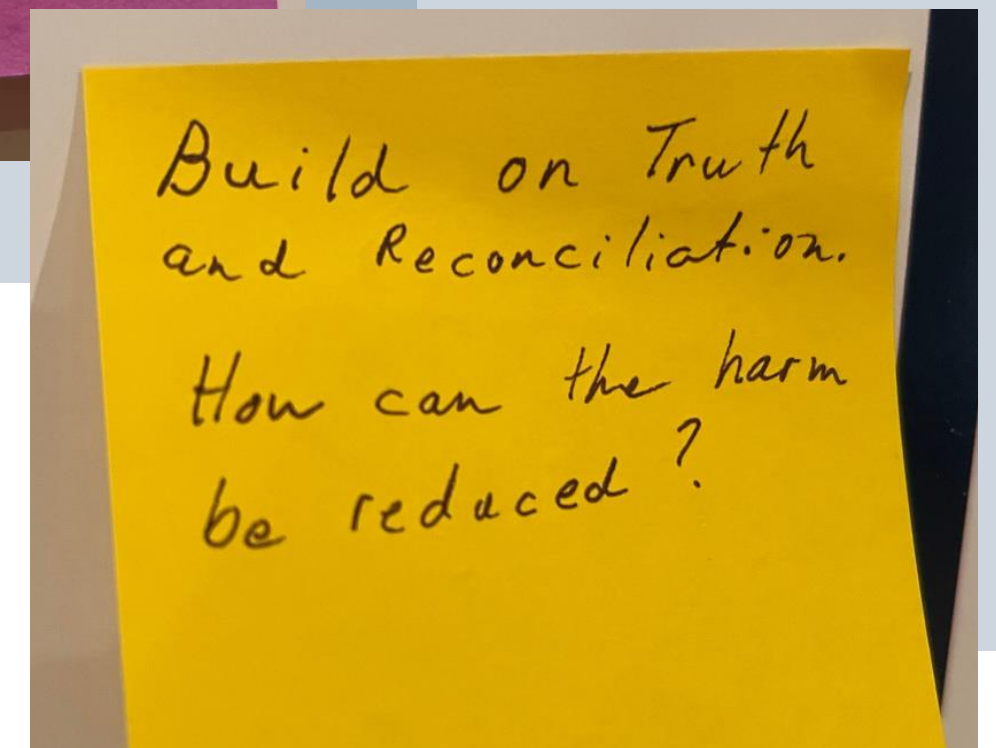 Build on Truth
and Reconciliation.
How can the harm
be reduced?